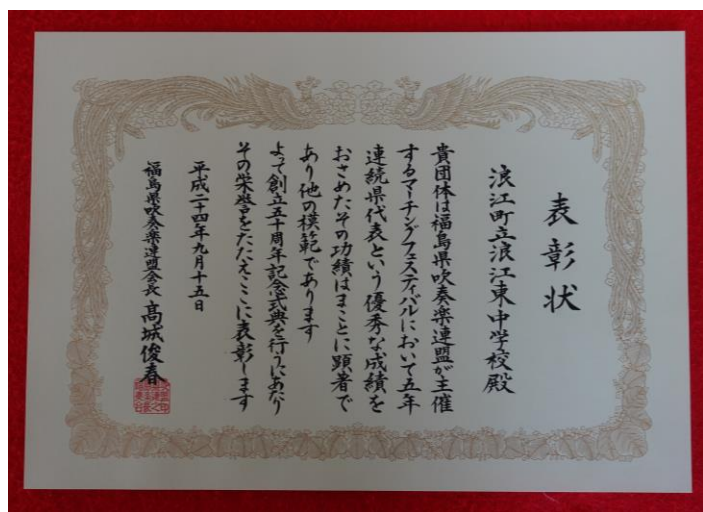 表彰状
浪江町立浪江東中学校殿
貴団体は福島県吹奏楽連盟が主催
するマーチングフェスティバルにおいて五年
連続県代表という優秀な成績を
おさめたその功績はまことに顕著で
あり他の模範であります
よって創立五十周年記念式典を行うにあたり
その栄誉をたたえここに表彰します
平成二十四年九月十五日
福島県吹奏楽連盟会長 高城俊春